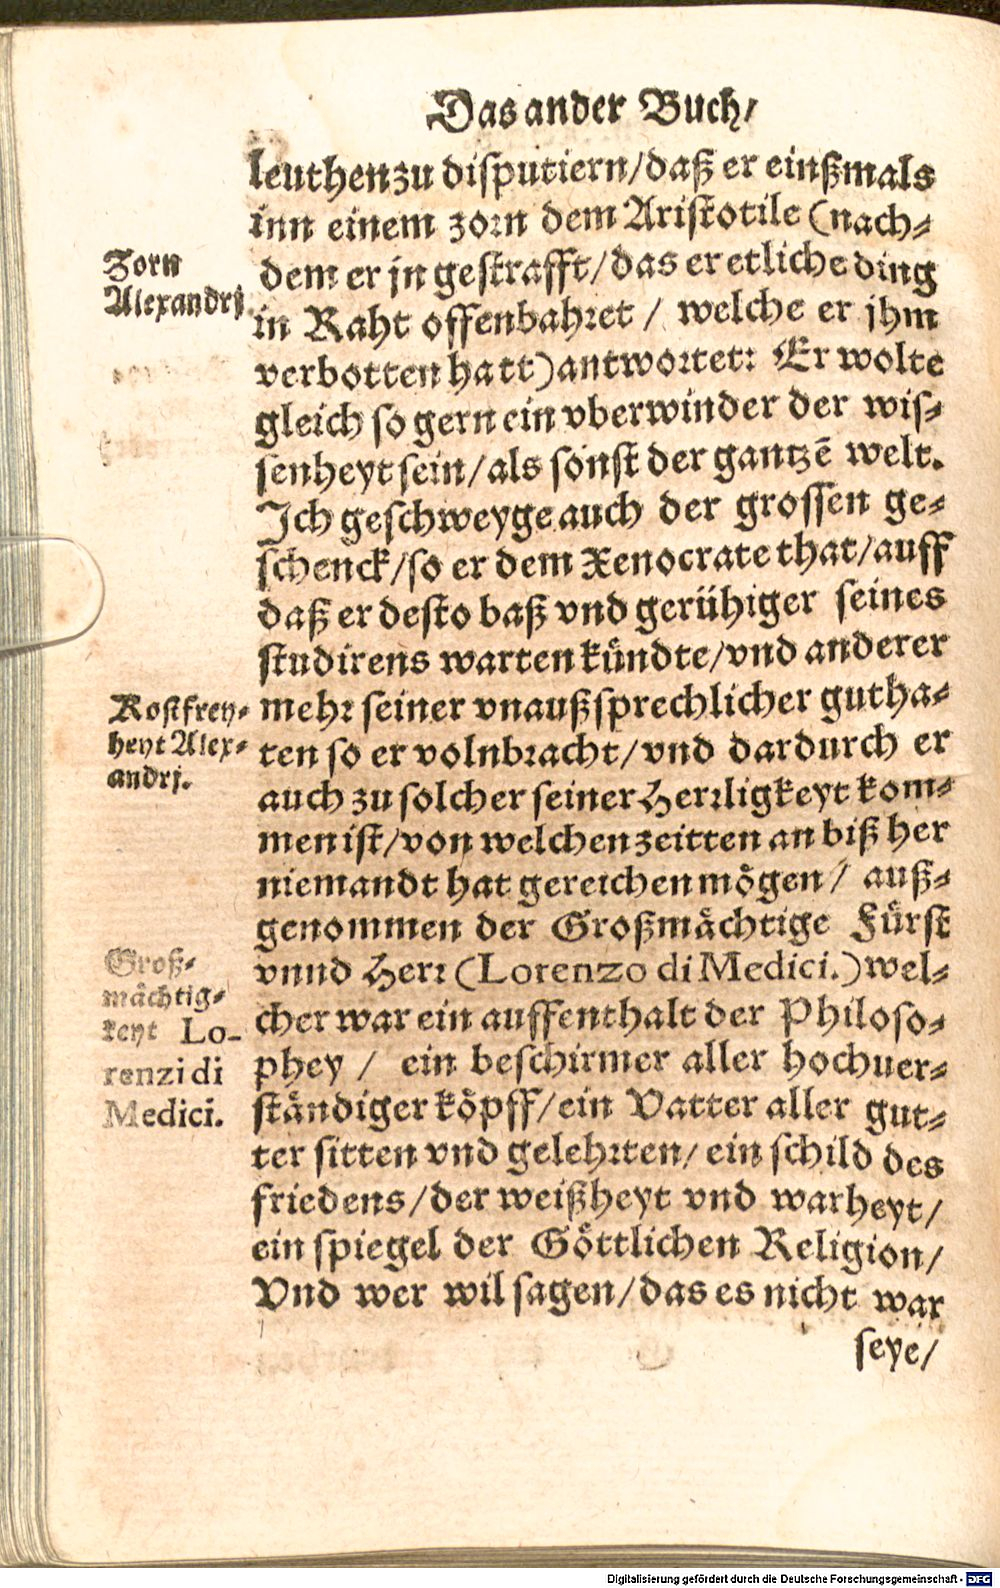 Das ander Buch/
leuthen zu disputiern/daß er einßmals
inn einem zorn dem Aristotile (nach-
dem er jn gestrafft/das er etliche ding
in Raht offenbahret / welche er jhm
verbotten hatt) antwortet: Er wolte
gleich so gern ein vberwinder der wis-
senheyt sein/als sonst der gantzē welt.
Ich geschweyge auch der grossen ge-
schenck/so er dem Xenocrate that/auff
daß er desto baß vnd gerühiger seines
studirens warten kündte/vnd anderer
mehr seiner vnaußsprechlicher gutha-
ten so er volnbracht/vnd dardurch er
auch zu solcher seiner Herrligkeyt kom-
men ist/von welchen zeitten an biß her
niemandt hat gereichen mögen/ auß-
genommen der Großmächtige Fürst
vnnd Herr (Lorenzo di Medici.) wel-
cher war ein auffenthalt der Philoso-
phey / ein beschirmer aller hochuer-
ständiger köpff/ein Vatter aller gut-
ter sitten vnd gelehrten/ ein schild des
friedens/der weißheyt vnd warheyt/
ein spiegel der Göttlichen Religion/
Vnd wer wil sagen/das es nicht war
seye/
Zorn
Alexandrj.
Kostfrey-
heyt Alex-
andrj.
Groß-
mächtig-
keyt Lo-
renzi di
Medici.
Digitalisierung gefördert durch die Deutsche Forschungsgemeinschaft - DFG